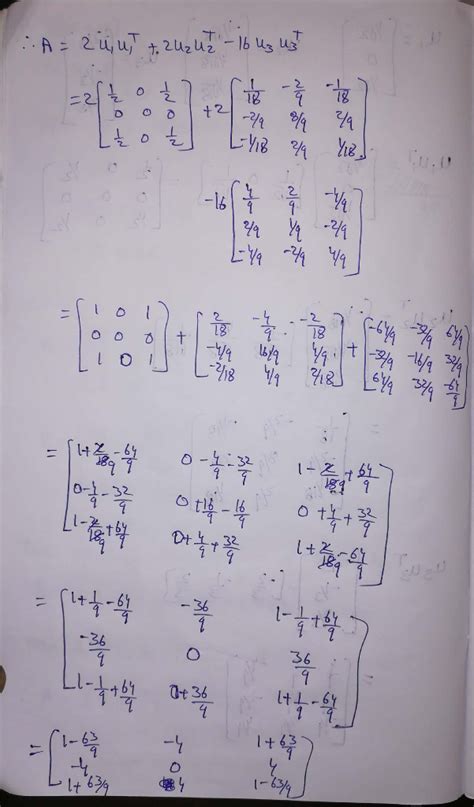 ∴ A = 2 u₁u₁ᵀ + 2u₂u₂ᵀ - 16 u₃u₃ᵀ
= 2 [1/2 0 1/2; 0 0 0; 1/2 0 1/2] + 2 [1/18 -2/9 -1/18; -2/9 8/9 2/9; -1/18 2/9 1/18]
-16 [4/9 2/9 -4/9; 2/9 1/9 -2/9; -4/9 -2/9 4/9]
= [1 0 1; 0 0 0; 1 0 1] + [2/18 -4/9 -2/18; -4/9 16/9 4/9; -2/18 4/9 2/18] + [-64/9 -32/9 64/9; -32/9 -16/9 32/9; 64/9 32/9 -64/9]
= [1+2/18 9 -64/9 0-4/9-32/9 1-2/18 9 +64/9
0-4/9-32/9 0+16/9-16/9 0+4/9+32/9
1-2/18 9 +64/9 0+4/9+32/9 1+2/18 9 -64/9]
= [1+1/9-64/9 -36/9 1-1/9+64/9
-36/9 0 36/9
1-1/9+64/9 +36/9 1+1/9-64/9]
= [1-63/9 -4 1+63/9
-4 0 4
1+63/9 4 1-63/9]